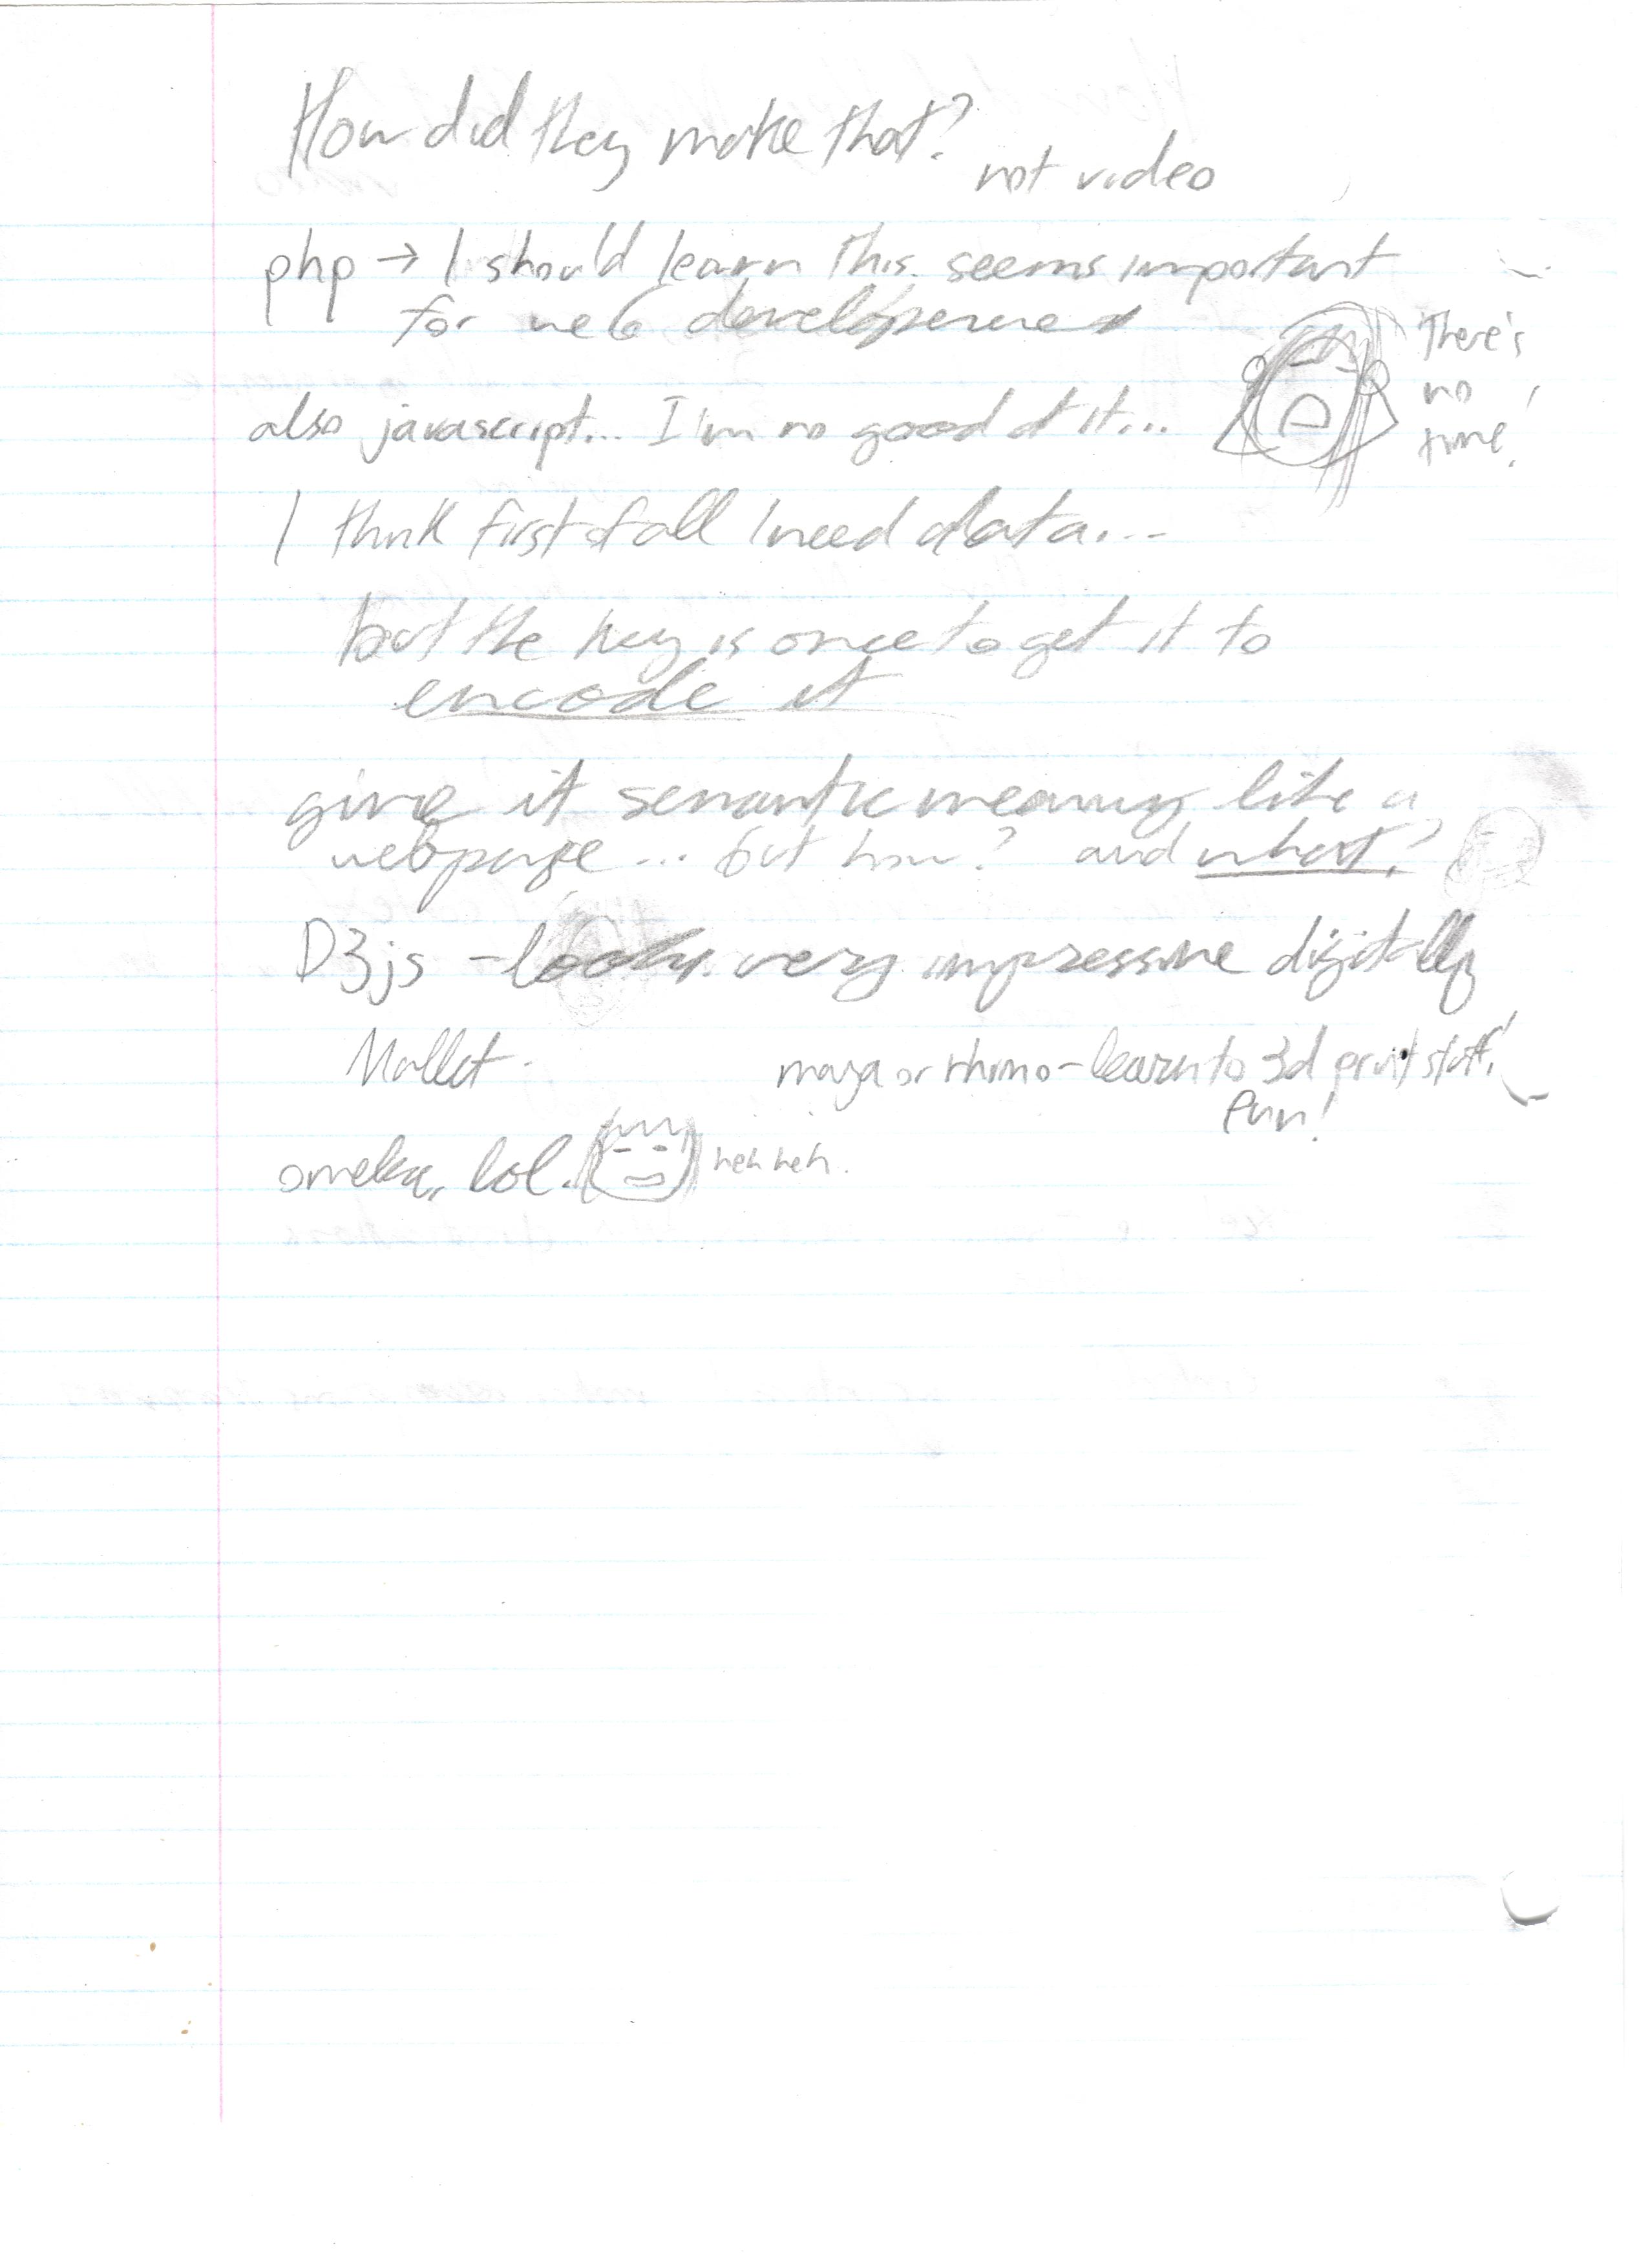 How did they make that?
not video
php → I should learn this. seems important
for web developement
There's
no
time!
also javascript... I'm no good at it...
I think first of all I need data...
but the key is once to get it to
encode it
give it semantic meaning like a
webpage... but how? and what?
D3js - looks very impressive digitally
Mallet -
maya or rhino - learn to 3d print stuff!
fun!
omeka, lol.
heh heh.